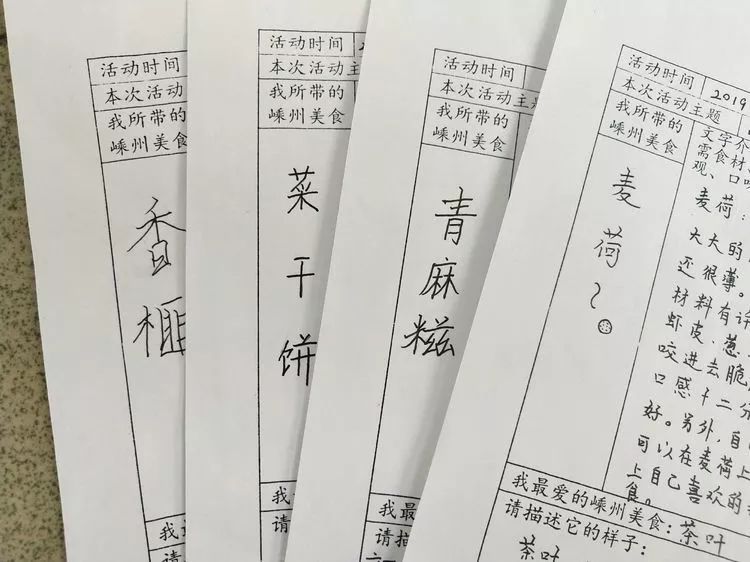 活动时间
本次活动
我所带的
嵊州美食
香
榧
我最
活动时间
本次活动主
我所带的
嵊州美食
菜
干
饼
我最爱
请描
活动时间
本次活动主题
我所带的
嵊州美食
青
麻
糍
我最爱的
请描述
活动时间 2019
本次活动主题
我所带的
嵊州美食
文字介
需食材
观、口味
麦
荷
麦荷：
大大的
还很薄。
材料有许
虾皮、葱
咬进去脆
口感十二分
好。另外，自
可以在麦荷上
上自己喜欢的
食。
我最爱的嵊州美食：茶叶
请描述它的样子：
茶叶